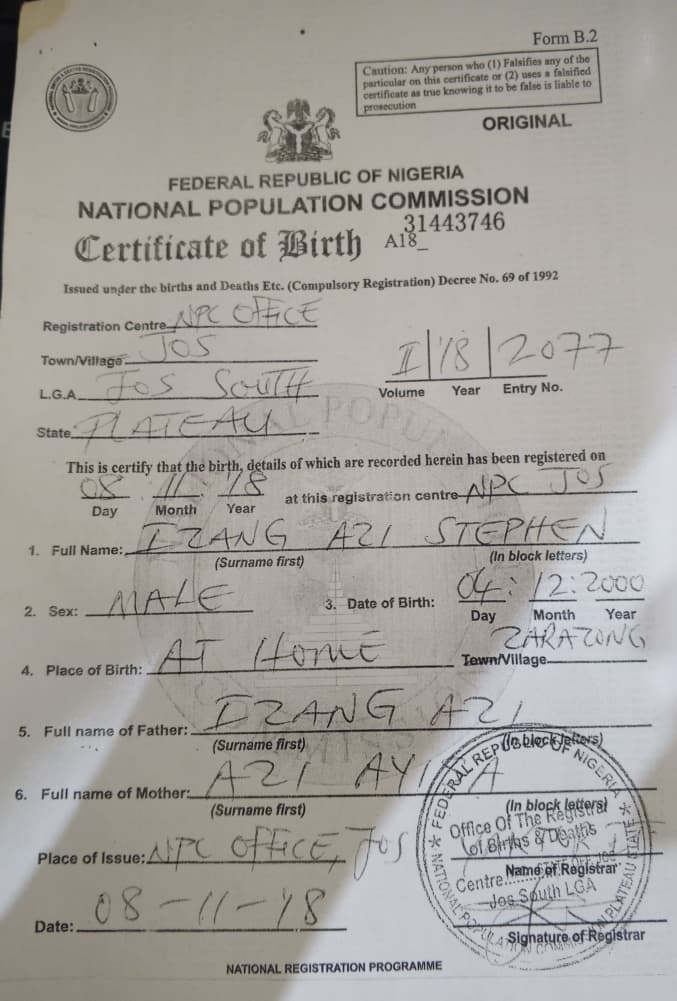 Form B.2
Caution: Any person who (1) Falsifies any of the
particular on this certificate or (2) uses a falsified
certificate as true knowing it to be false is liable to
prosecution
ORIGINAL
FEDERAL REPUBLIC OF NIGERIA
NATIONAL POPULATION COMMISSION
31443746
Certificate of Birth A18_
Issued under the births and Deaths Etc. (Compulsory Registration) Decree No. 69 of 1992
Registration Centre NPC OFFICE
Town/Village JOS
L.G.A. JOS SOUTH
State PLATEAU
II/18/2077
Volume Year Entry No.
This is certify that the birth, details of which are recorded herein has been registered on
08 11 18 at this registration centre NPC JOS
Day Month Year
1. Full Name: IZANG AZI STEPHEN
(Surname first) (In block letters)
2. Sex: MALE 3. Date of Birth: 04:12:2000
Day Month Year
4. Place of Birth: AT HOME Town/Village ZARAZONG
5. Full name of Father: IZANG AZI
(Surname first) (In block letters)
6. Full name of Mother: AZI
(Surname first) (In block letters)
Place of Issue: NPC OFFICE, JOS
Name of Registrar
Date: 08-11-18
Signature of Registrar
FEDERAL REPUBLIC OF NIGERIA
Office Of The Registrar
of Births & Deaths
Centre
Jos South LGA
NATIONAL REGISTRATION PROGRAMME